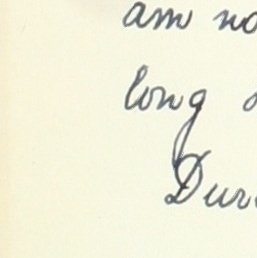 am no
long
Dur